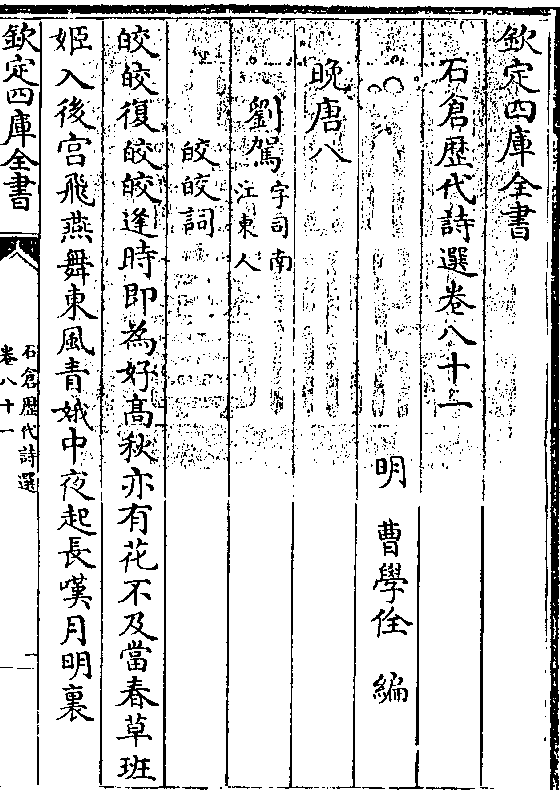 欽定四庫全書
石倉歴代詩選卷八十一
明 曹學佺 編
晚唐八
劉駕字司南江東人
皎皎詞
皎皎復皎皎逢時即為好高秋亦有花不及當春草班
姬入後宫飛燕舞東風青娥中夜起長嘆月明裏
欽定四庫全書
石倉歴代詩選
卷八十一
一